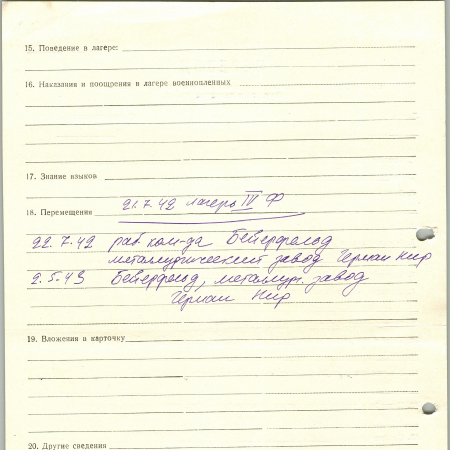 15. Поведение в лагере:
16. Наказания и поощрения в лагере военнопленных
17. Знание языков
21.7.42 лагерь IV Ф
18. Перемещения
22.7.42 раб. ком-да Бейерфельд
металлургический завод Герман Нир
2.5.43 Бейерфельд, металлург. завод
Герман Нир
19. Вложения в карточку
20. Другие сведения